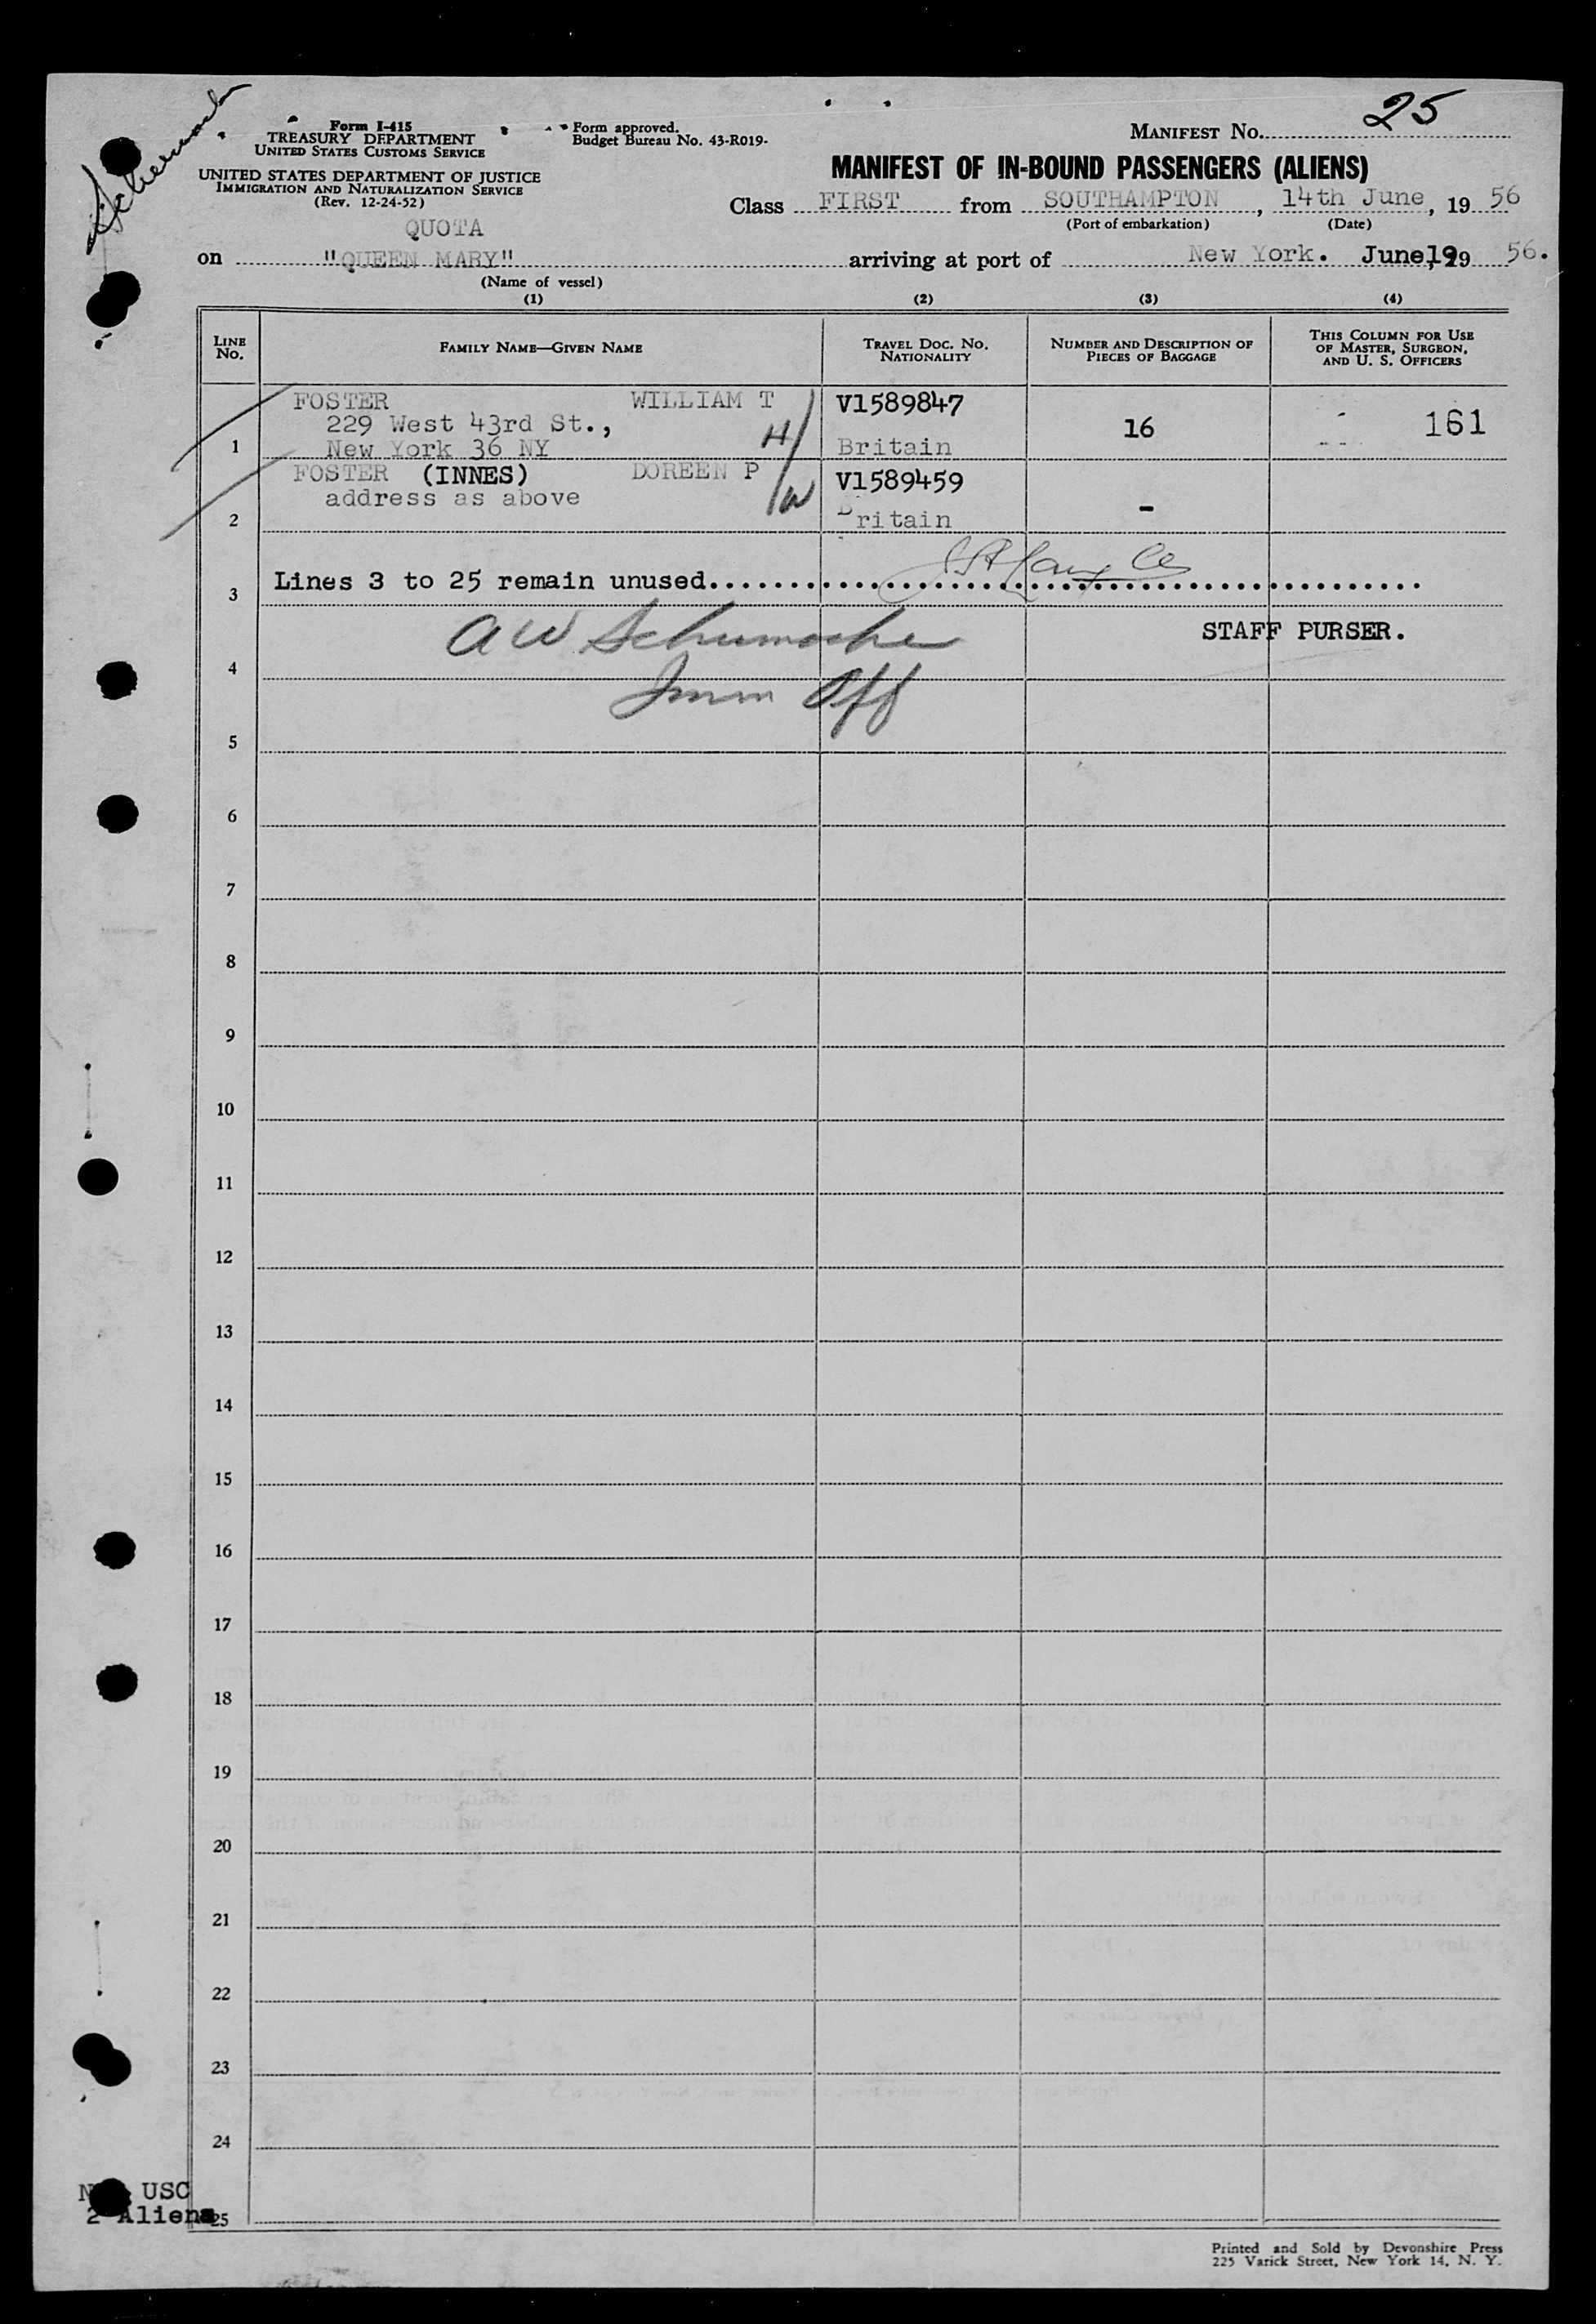 Schumacher
25
Form I-415
TREASURY DEPARTMENT
UNITED STATES CUSTOMS SERVICE
UNITED STATES DEPARTMENT OF JUSTICE
IMMIGRATION AND NATURALIZATION SERVICE
(Rev. 12-24-52)
Form approved.
Budget Bureau No. 43-R019-
MANIFEST No.
MANIFEST OF IN-BOUND PASSENGERS (ALIENS)
Class FIRST from SOUTHAMPTON, 14th June, 19 56
(Port of embarkation) (Date)
QUOTA
on "QUEEN MARY" arriving at port of New York. June 19, 19 56.
(Name of vessel)
(1) (2) (3) (4)
LINE No. FAMILY NAME—GIVEN NAME TRAVEL DOC. No. NATIONALITY NUMBER AND DESCRIPTION OF PIECES OF BAGGAGE THIS COLUMN FOR USE OF MASTER, SURGEON, AND U. S. OFFICERS
FOSTER WILLIAM T V1589847
229 West 43rd St., 16 161
1 New York 36 NY H Britain
FOSTER (INNES) DOREEN P V1589459
address as above W -
2 Britain
3 Lines 3 to 25 remain unused
A W Schumacher STAFF PURSER.
4
Imm Off
5
6
7
8
9
10
11
12
13
14
15
16
17
18
19
20
21
22
23
24
USC
2 Aliens
25
Printed and Sold by Devonshire Press
225 Varick Street, New York 14, N. Y.